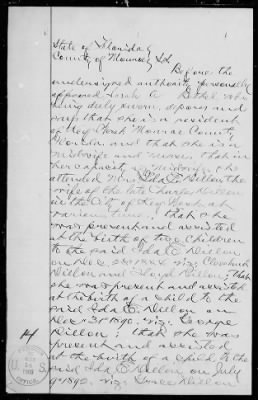 State of Florida
County of Monroe } SS
Before the
undersigned authority personally
appeared Sarah A. Bethel who
being duly sworn, deposes and
says that she is a resident
of Key West Monroe County
Florida and that she is a
midwife and nurse, that in
her capacity as midwife she
attended Mrs Ida E. Dillon, the
wife of the late Charles Dillon
in the City of Key West at
various times, that she
was present and assisted
at the birth of two children
to the said Ida E. Dillon
on Dec viz,
Dillon and Lloyd Dillon; that
she was present and assisted
at the birth of a child to the
said Ida E. Dillon on
Dec 31st 1890, viz, George
Dillon; that she was
present and assisted
at the birth of a child to the
said Ida E. Dillon on July
viz; Grace Dillon